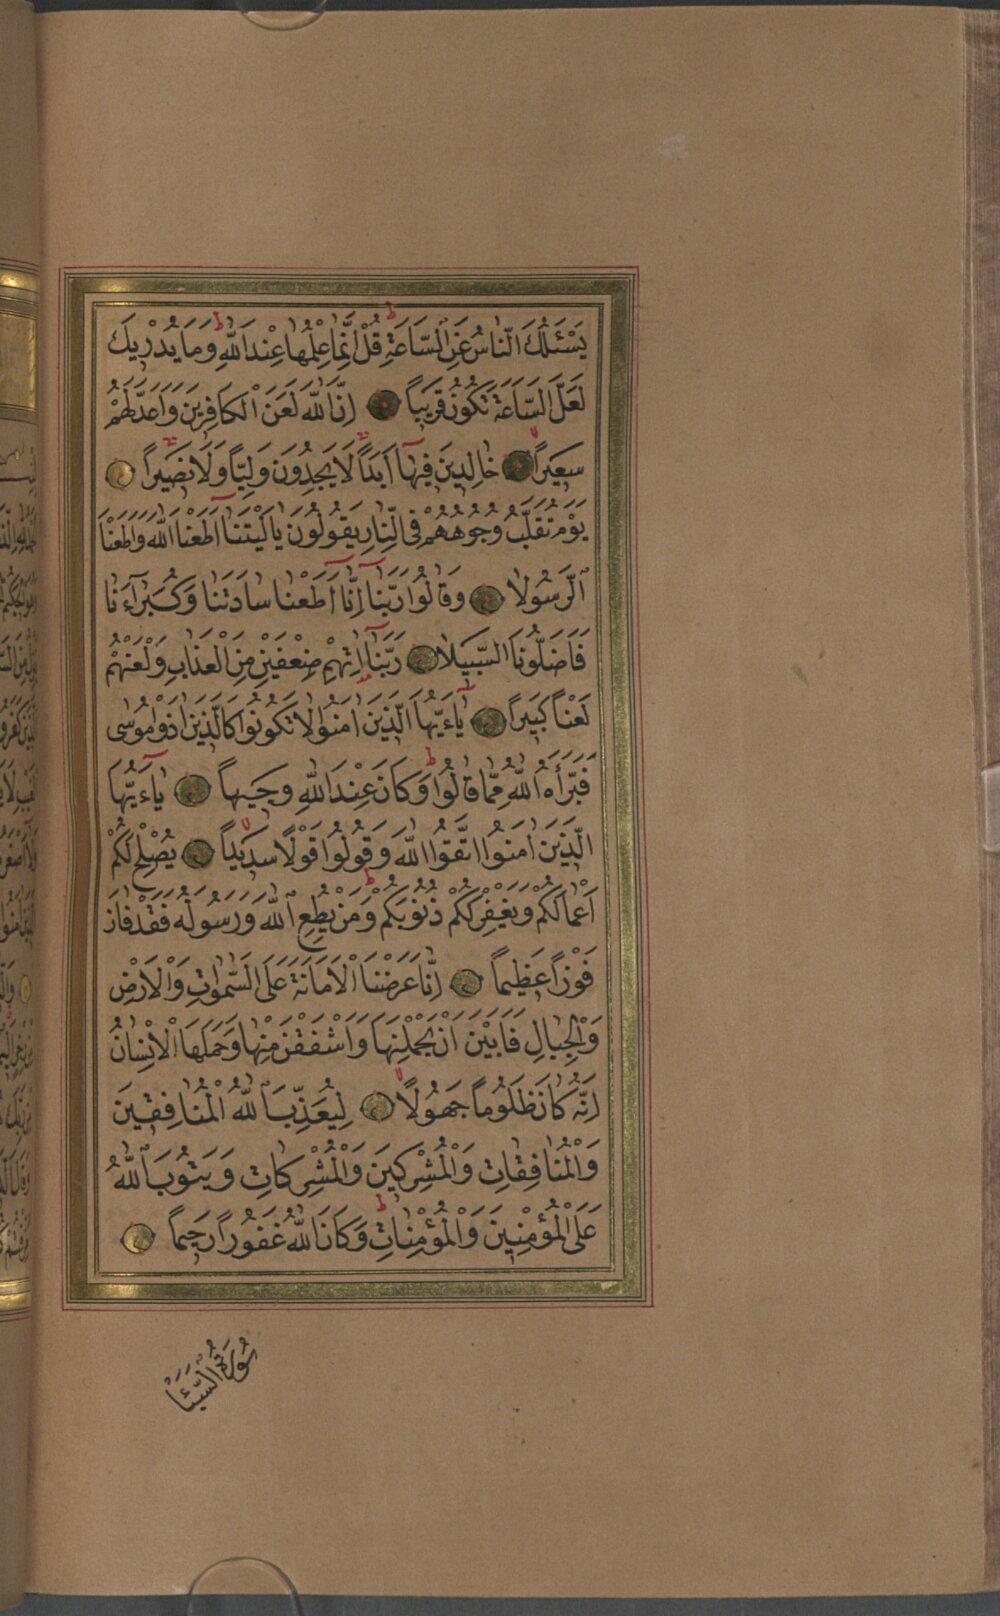 يَسْـَٔلُكَ النَّاسُ عَنِ السَّاعَةِ ط قُلْ اِنَّمَا عِلْمُهَا عِنْدَ اللّٰهِ ط وَمَا يُدْرِيكَ
لَعَلَّ السَّاعَةَ تَكُونُ قَرِيبًا اِنَّ اللّٰهَ لَعَنَ الْكَافِرِينَ وَاَعَدَّ لَهُمْ
سَعِيرًا خَالِدِينَ فِيهَٓا اَبَدًا لَا يَجِدُونَ وَلِيًّا وَلَا نَصِيرًا
يَوْمَ تُقَلَّبُ وُجُوهُهُمْ فِي النَّارِ يَقُولُونَ يَا لَيْتَنَٓا اَطَعْنَا اللّٰهَ وَاَطَعْنَا
الرَّسُولَا وَقَالُوا رَبَّنَٓا اِنَّٓا اَطَعْنَا سَادَتَنَا وَكُبَرَٓاءَنَا
فَاَضَلُّونَا السَّبِيلَا رَبَّنَٓا اٰتِهِمْ ضِعْفَيْنِ مِنَ الْعَذَابِ وَالْعَنْهُمْ
لَعْنًا كَبِيرًا يَٓا ءَيُّهَا الَّذِينَ اٰمَنُوا لَا تَكُونُوا كَالَّذِينَ اٰذَوْا مُوسٰى
فَبَرَّأَهُ اللّٰهُ مِمَّا قَالُوا ط وَكَانَ عِنْدَ اللّٰهِ وَجِيهًا يَٓا ءَيُّهَا
الَّذِينَ اٰمَنُوا اتَّقُوا اللّٰهَ وَقُولُوا قَوْلًا سَدِيدًا يُصْلِحْ لَكُمْ
اَعْمَالَكُمْ وَيَغْفِرْ لَكُمْ ذُنُوبَكُمْ ط وَمَنْ يُطِعِ اللّٰهَ وَرَسُولَهُ فَقَدْ فَازَ
فَوْزًا عَظِيمًا اِنَّا عَرَضْنَا الْاَمَانَةَ عَلَى السَّمٰوَاتِ وَالْاَرْضِ
وَالْجِبَالِ فَاَبَيْنَ اَنْ يَحْمِلْنَهَا وَاَشْفَقْنَ مِنْهَا وَحَمَلَهَا الْاِنْسَانُ
اِنَّهُ كَانَ ظَلُومًا جَهُولًا لِيُعَذِّبَ اللّٰهُ الْمُنَافِقِينَ
وَالْمُنَافِقَاتِ وَالْمُشْرِكِينَ وَالْمُشْرِكَاتِ وَيَتُوبَ اللّٰهُ
عَلَى الْمُؤْمِنِينَ وَالْمُؤْمِنَاتِ ط وَكَانَ اللّٰهُ غَفُورًا رَحِيمًا
سُورَةُ السَّبَأ